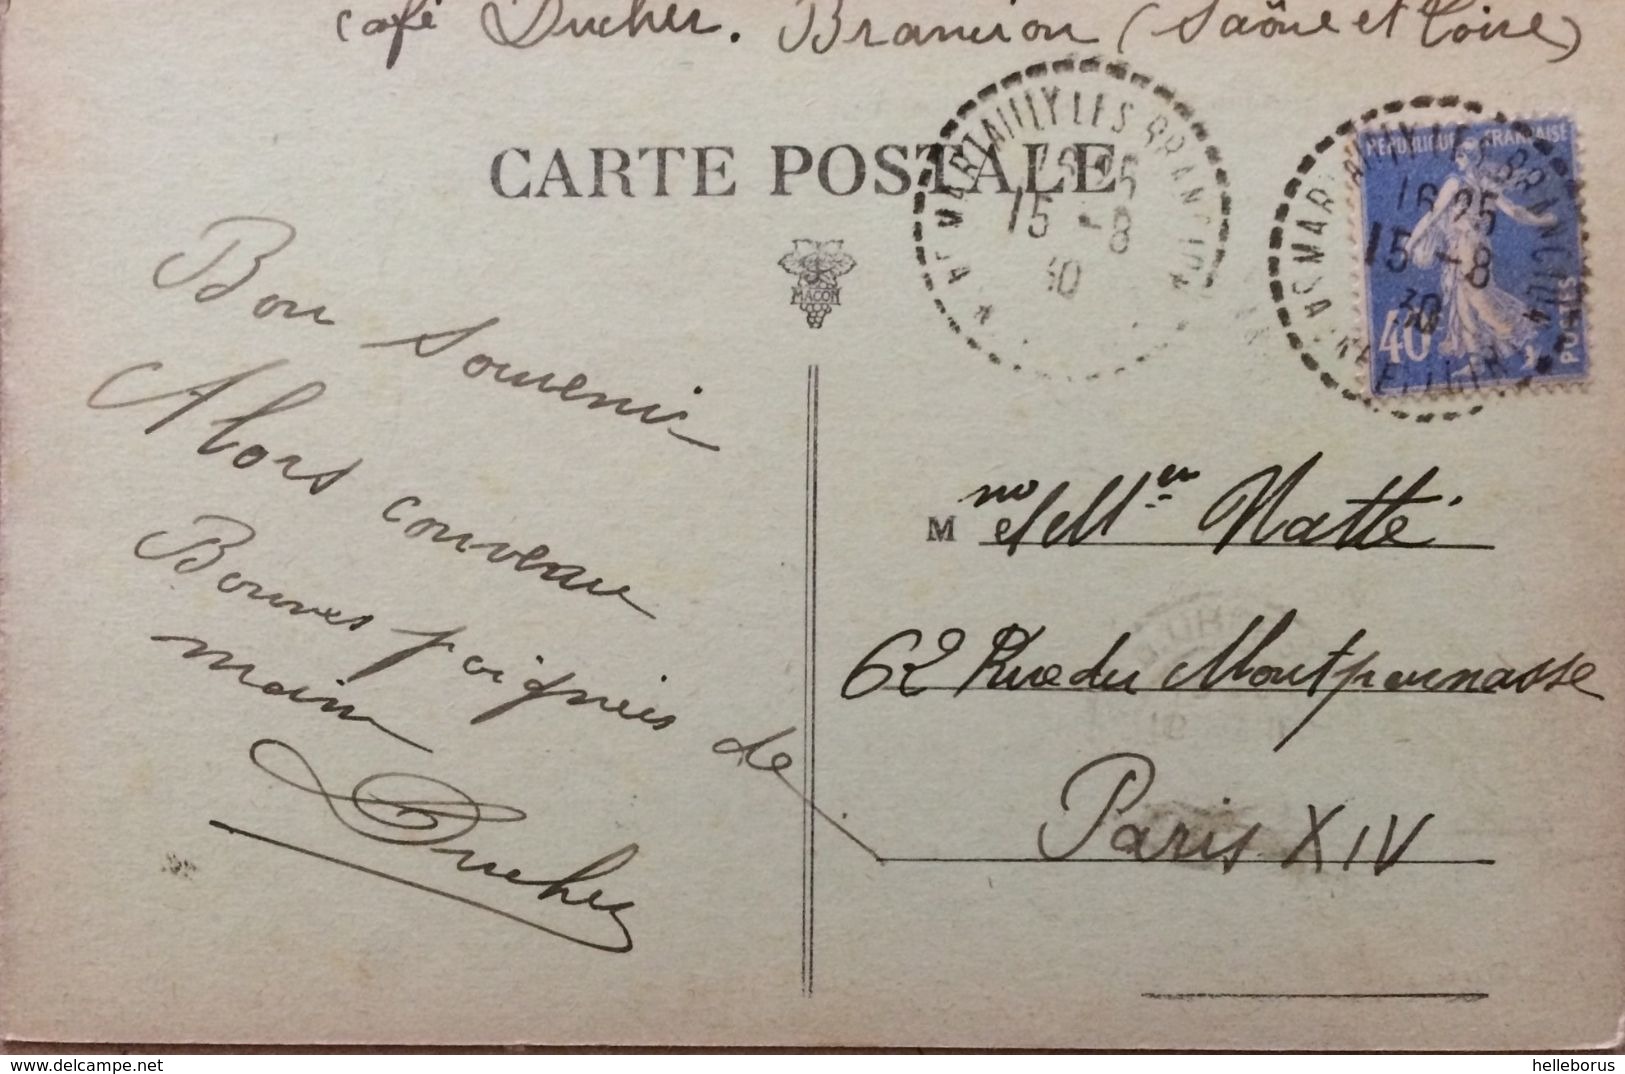 café Ducher. Brancion (Saône et Loire)
CARTE POSTALE
MARTAILLY LES BRANCION
16 25
15 -8
30
MARTAILLY LES BRANCION
16 25
15 -8
30
REPUBLIQUE FRANÇAISE
40
POSTES
MACON
Bon souvenir
Alors conveau
Bonnes poignées de
main
Ducher
M
et Mlle Natté
62 Rue du Montparnasse
Paris XIV
delcampe.net
helleborus